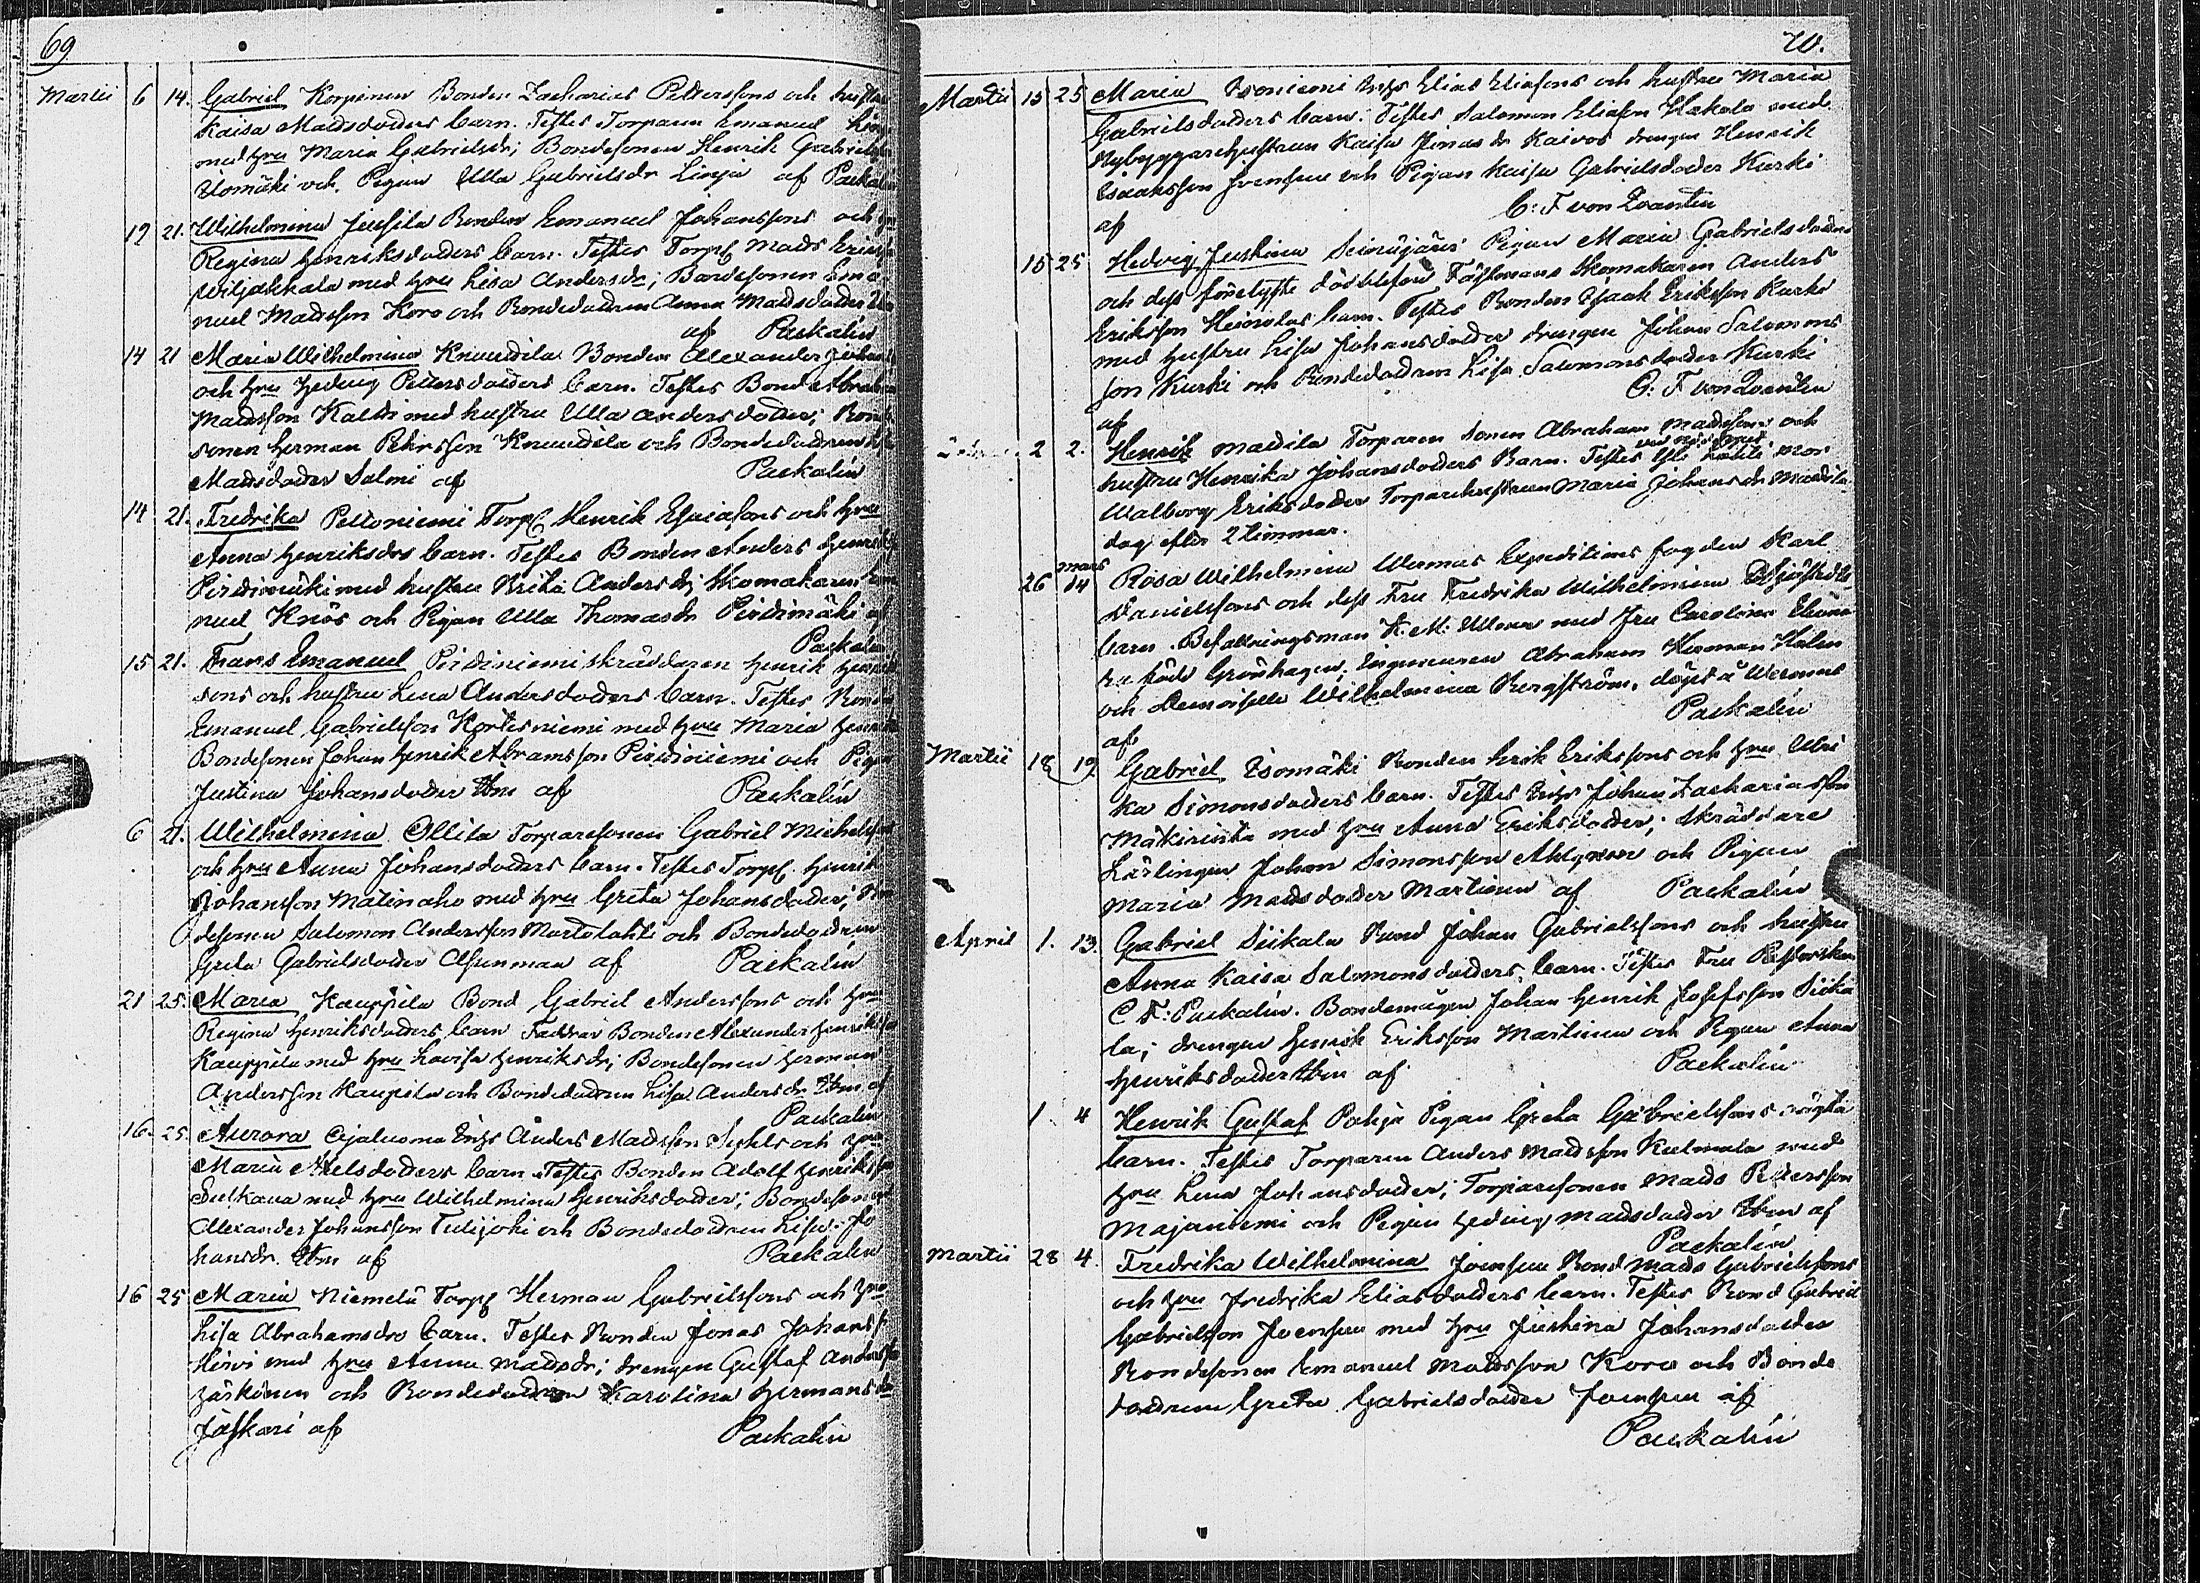 69
Martii 6 14. Gabriel Korpinen Bonden Zacharias Pettersfons och hustru
Kaisa Madsdoders barn. Testes Torparen Emanuel
med hru Maria Gabrielsdr; Bondesonen Henrik Gabrielsson
och Pigan Ulla Gabrielsdr af Paekalin
19 21. Wilhelmina Jussila Bonden Emanuel Johanssons och hru
Regina Henriksdoders barn. Testes Torp Mads Eriksson
Wiljakkala med hru Lisa Andersdr; Bondesonen Ema-
nuel Madsson Koro och Bondedodren Anna Madsdoder
af Paekalin
14 21 Maria Wilhelmina Knuutila Bonden Alexander
och hru Hedvig Pettersdoders barn. Testes Bond Abraham
Madsson Kaltti med hustru Ulla Andersdoder; Bonde
sonen Herman Pehrsson Knuutila och Bondedodren
Madsdoder Salmi af Paekalin
14 21. Fredrika Peltoniemi Torp Henrik Esaiasons och hru
Anna Henriksdrs barn. Testes Bonden Anders Henriksson
Pirdimäki med hustru Brita Andersdr; Skomakaren Ema
nuel Knös och Pigan Ulla Thomasdr Pirdimäki af
Paekalin
15 21. Frans Emanuel Pirdiniemi skräddaren Henrik Henriks
sons och hustru Lena Andersdoders barn. Testes Bonden
Emanuel Gabrielsson Kortesniemi med hru Maria
Bondesonen Johan Henrik Abramsson Pirdiniemi och Pigan
Justina Johansdoder Ibm af Paekalin
6 21. Wilhelmina Ollila Torparesonen Gabriel Michelsons
och hru Anna Johansdoders barn. Testes Torp. Henrik
Johansson Matinaho med hru Greta Johansdoder; Bon
desonen Salomon Andersson Martolahti och Bondedodren
Greta Gabrielsdoder Asunmaa af Paekalin
21 25. Maria Kauppila Bond Gabriel Anderssons och hru
Regina Henriksdoders barn Faddrar Bonden Alexander Henriksson
Kauppila med hru Lovisa Henriksdr; Bondesonen Herman
Andersson Kaupila och Bondedodren Lisa Andersdr Ibm af
Paekalin
16. 25. Aurora Anders Madsson och hru
Maria Axelsdoders barn Testes Bonden Adolf Henriksson
Sulkava med hru Wilhelmina Henriksdoder; Bondesonen
Alexander Johansson Tulijoki och Bondedodren Lisa Jo
hansdr. Ibm af Paekalin
16 25 Maria Niemelä Torp Herman Gabrielsons och hru
Lisa Abrahamsdrs barn. Testes Bonden Jonas Johanss
Hirvi med hru Anna Madsdr; drengen Gustaf Andersson
och Bondedodren Karolina Hermansdr
Jäskari af Paekalin
70.
Martii 15 25 Maria Isoniemi Inhs Elias Eliasons och hustru Maria
Gabrielsdoders barn. Testes Salomon Eliason Hakala med
Nybyggarehustrun Kaisa Jonasdr Kaivos drengen Henrik
Isaaksson Joensuu och Pigan Kaisa Gabrielsdoder Kurki
af C: F von Zvanten
15 25 Hedvig Justina Pigan Maria Gabrielsdoders
och dess förelyste Fästmans Skomakaren Anders
Eriksson barn. Testes Bonden Isaak Eriksson Kurki
med hustru Lisa Johansdoder drengen Johan Salomons
son Kurki och Bondedodren Lisa Salomonsdoder Kurki
af C: F von Zvanten
2 2. Henrik Mattila Torparen sonen Abraham Madssons och
hustru Henrika Johansdoders Barn. Testes mor
Walborg Eriksdoder Torparehustrun Maria Johansdr Mattila
dog efter 2 timmar.
26 mars 14 Rosa Wilhelmina Wermas Expeditions fogden Karl
Danielssons och dess Fru Fredrika Wilhelmina
barn. Befallningsman K. M: med Fru Carolina
född Grönhagen; Ingenieuren Abraham Herman
och Demoiselle Wilhelmina Bergström. döpt å
af Paekalin
Martii 18 19 Gabriel Isomäki Bonden Erik Erikssons och hru Ulri
ka Simonsdoders barn. Testes Inhs Johan Zachariasson
Mäkiranta med hru Anna Eriksdoder; Skräddare
Lärlingen Johan Simonsson Ahlgren och Pigan
Maria Madsdoder Martinen af Paekalin
April 1. 13. Gabriel Siikala Bond Johan Gabrielssons och hustru
Anna Kaisa Salomonsdoders barn. Testes Fru
C F: Paekalin. Bondemågen Johan Henrik Josefsson Siika
la; drengen Henrik Eriksson Martinen och Pigan Anna
Henriksdoder Ibm af Paekalin
1 4 Henrik Gustaf Pohja Pigan Greta Gabrielssons oägta
barn. Testes Torparen Anders Madsson Kulmala med
hru Lena Johansdoder; Torparesonen Mads Petersson
Majaniemi och Pigan Hedvig Madsdoder Ibm af
Paekalin
Martii 28 4. Fredrika Wilhelmina Joensuu Bond Mads Gabrielsons
och hru Fredrika Eliasdoders barn. Testes Bond Gabriel
Gabrielsson Joensuu med hru Justina Johansdoder
Bondesonen Emanuel Madsson Koro och Bonde
dodren Greta Gabrielsdoder Joensuu af
Paekalin